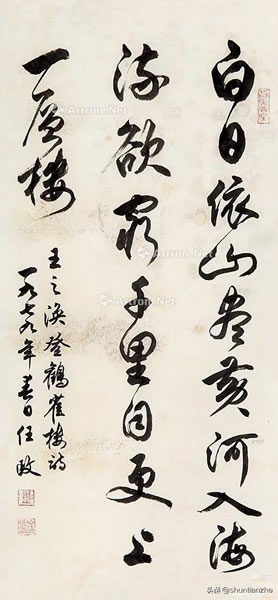 白日依山尽黄河入海
流欲穷千里目更上
一层楼
王之涣登鹤雀楼诗
一九七九年春日任政
Artron.Net
头条 @shuntianzhe